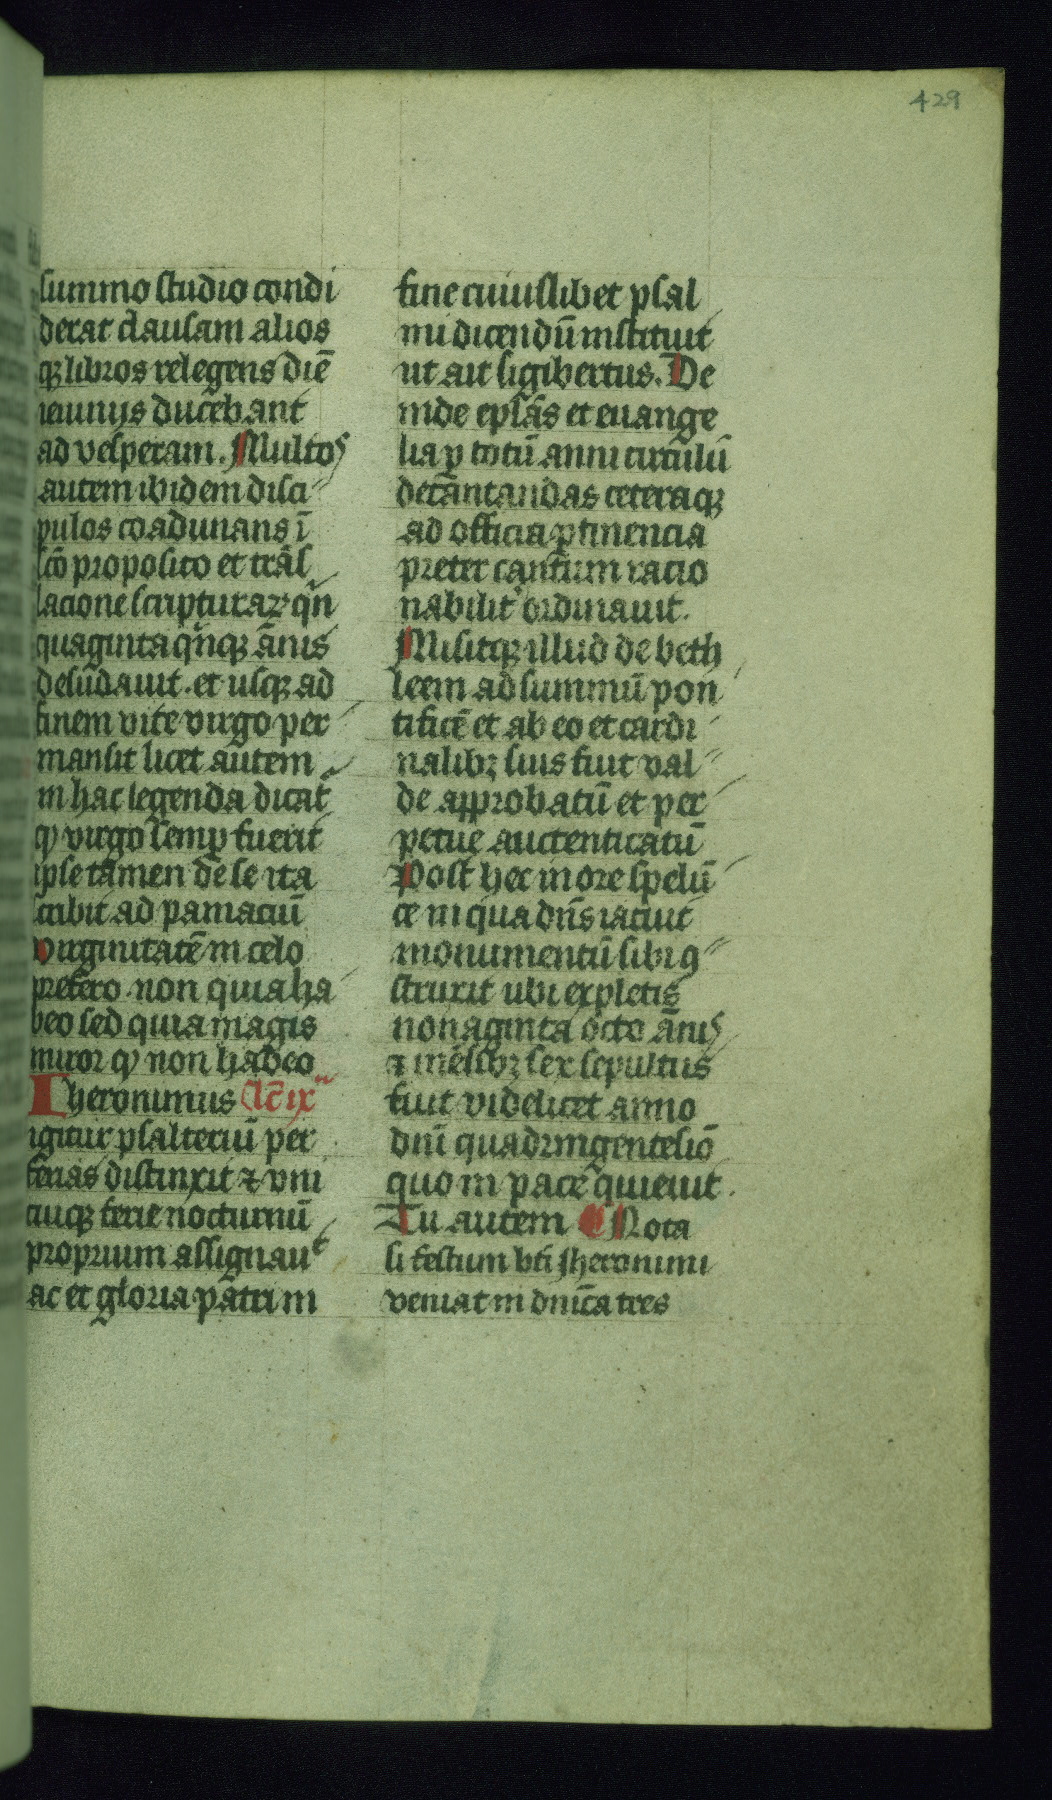 429
summo studio condi
derat clausam alios
qꝫ libros relegens diē
ieiunijs ducebant
ad vesperam. Multos
autem ibidem disci
pulos coadunans ī
sc̄o proposito et trāns
lacione scripturaꝝ qn̄
quaginta qn̄qꝫ ānis
desūdauit. et usqꝫ ad
finem vite virgo per
mansit licet autem
in hac legenda dicat̄
ꝙ virgo semꝑ fuerit
ipse tamen de se ita
scribit ad pamaciū
virginitatē in celo
prefero. non quia ha
beo sed quia magis
miror ꝙ non habeo
Iheronimus lc̄ ix
igitur psalteriū per
ferias distinxit ⁊ vni
cuiqꝫ ferie nocturnū
proprium assignauᵗ
ac et gloria patri in
fine cuiuslibet psal
mi dicendū instituit
ut ait sigibertus. De
inde epl̄as et euange
lia ꝑ totū anni circulū
decantandas ceteraqꝫ
ad officia ꝑtinencia
preter cantum racio
nabilit᷑ ordinauit.
Misitqꝫ illud de beth
leem ad summū pon
tificē et ab eo et cardi
nalibꝫ suis fuit val
de approbatū et per
petue auctenticatū
Post hec in ore spelū
ce in qua dn̄s iacuit
monumentū sibi ꝯ
struxit ubi expletis
nonaginta octo ānis
⁊ mēsibꝫ sex sepultus
fuit videlicet anno
dn̄i quadringentesiō
quo in pace quieuit.
Tu autem ¶ Nota
si festum bt̄i Jheronimi
veniat in dn̄ica tres